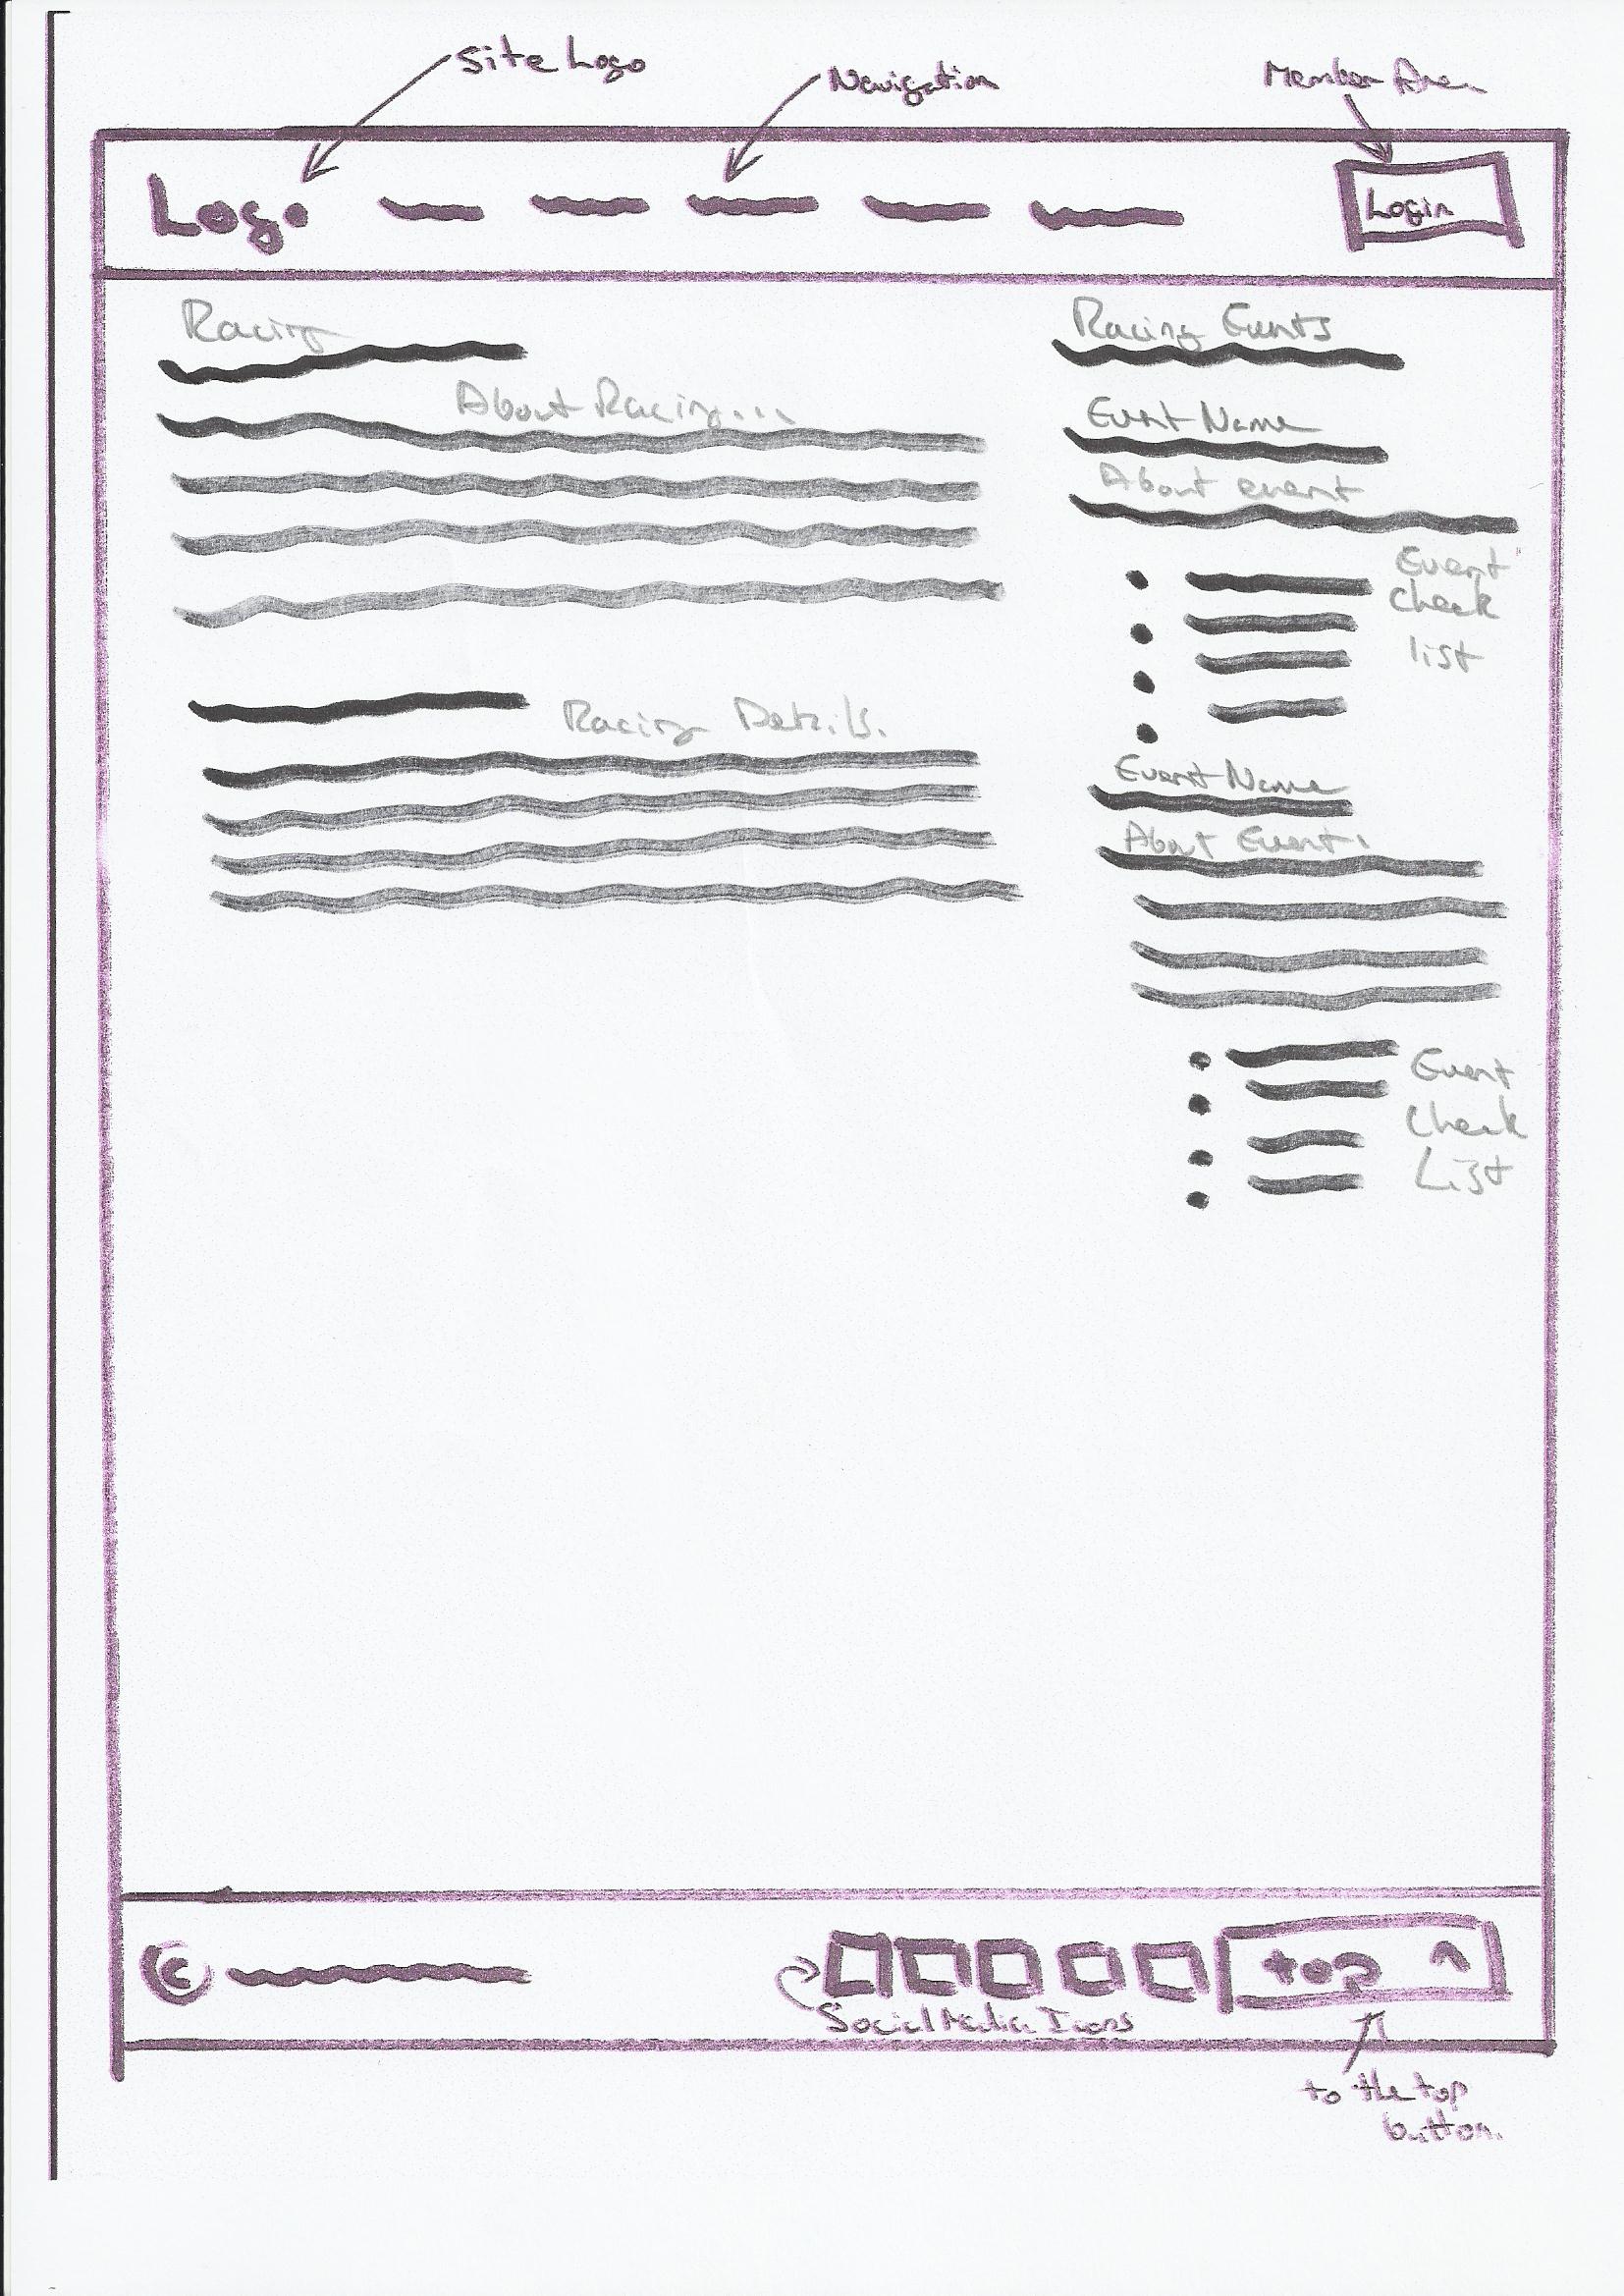 Site Logo
Navigation
Member Area
Logo
Login
Racing
About Racing...
Racing Details.
Racing Events
Event Name
About event
Event
Check
list
Event Name
About Event.
Event
Check
List
©
top ^
Social Media Icons
to the top
button.